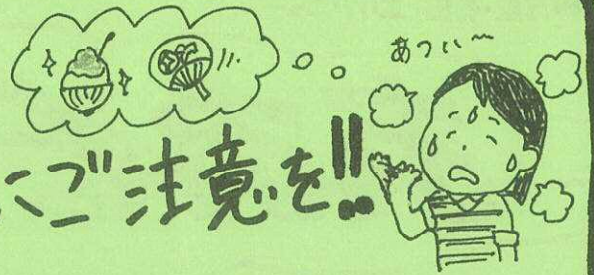 あつい〜
にご注意を!!